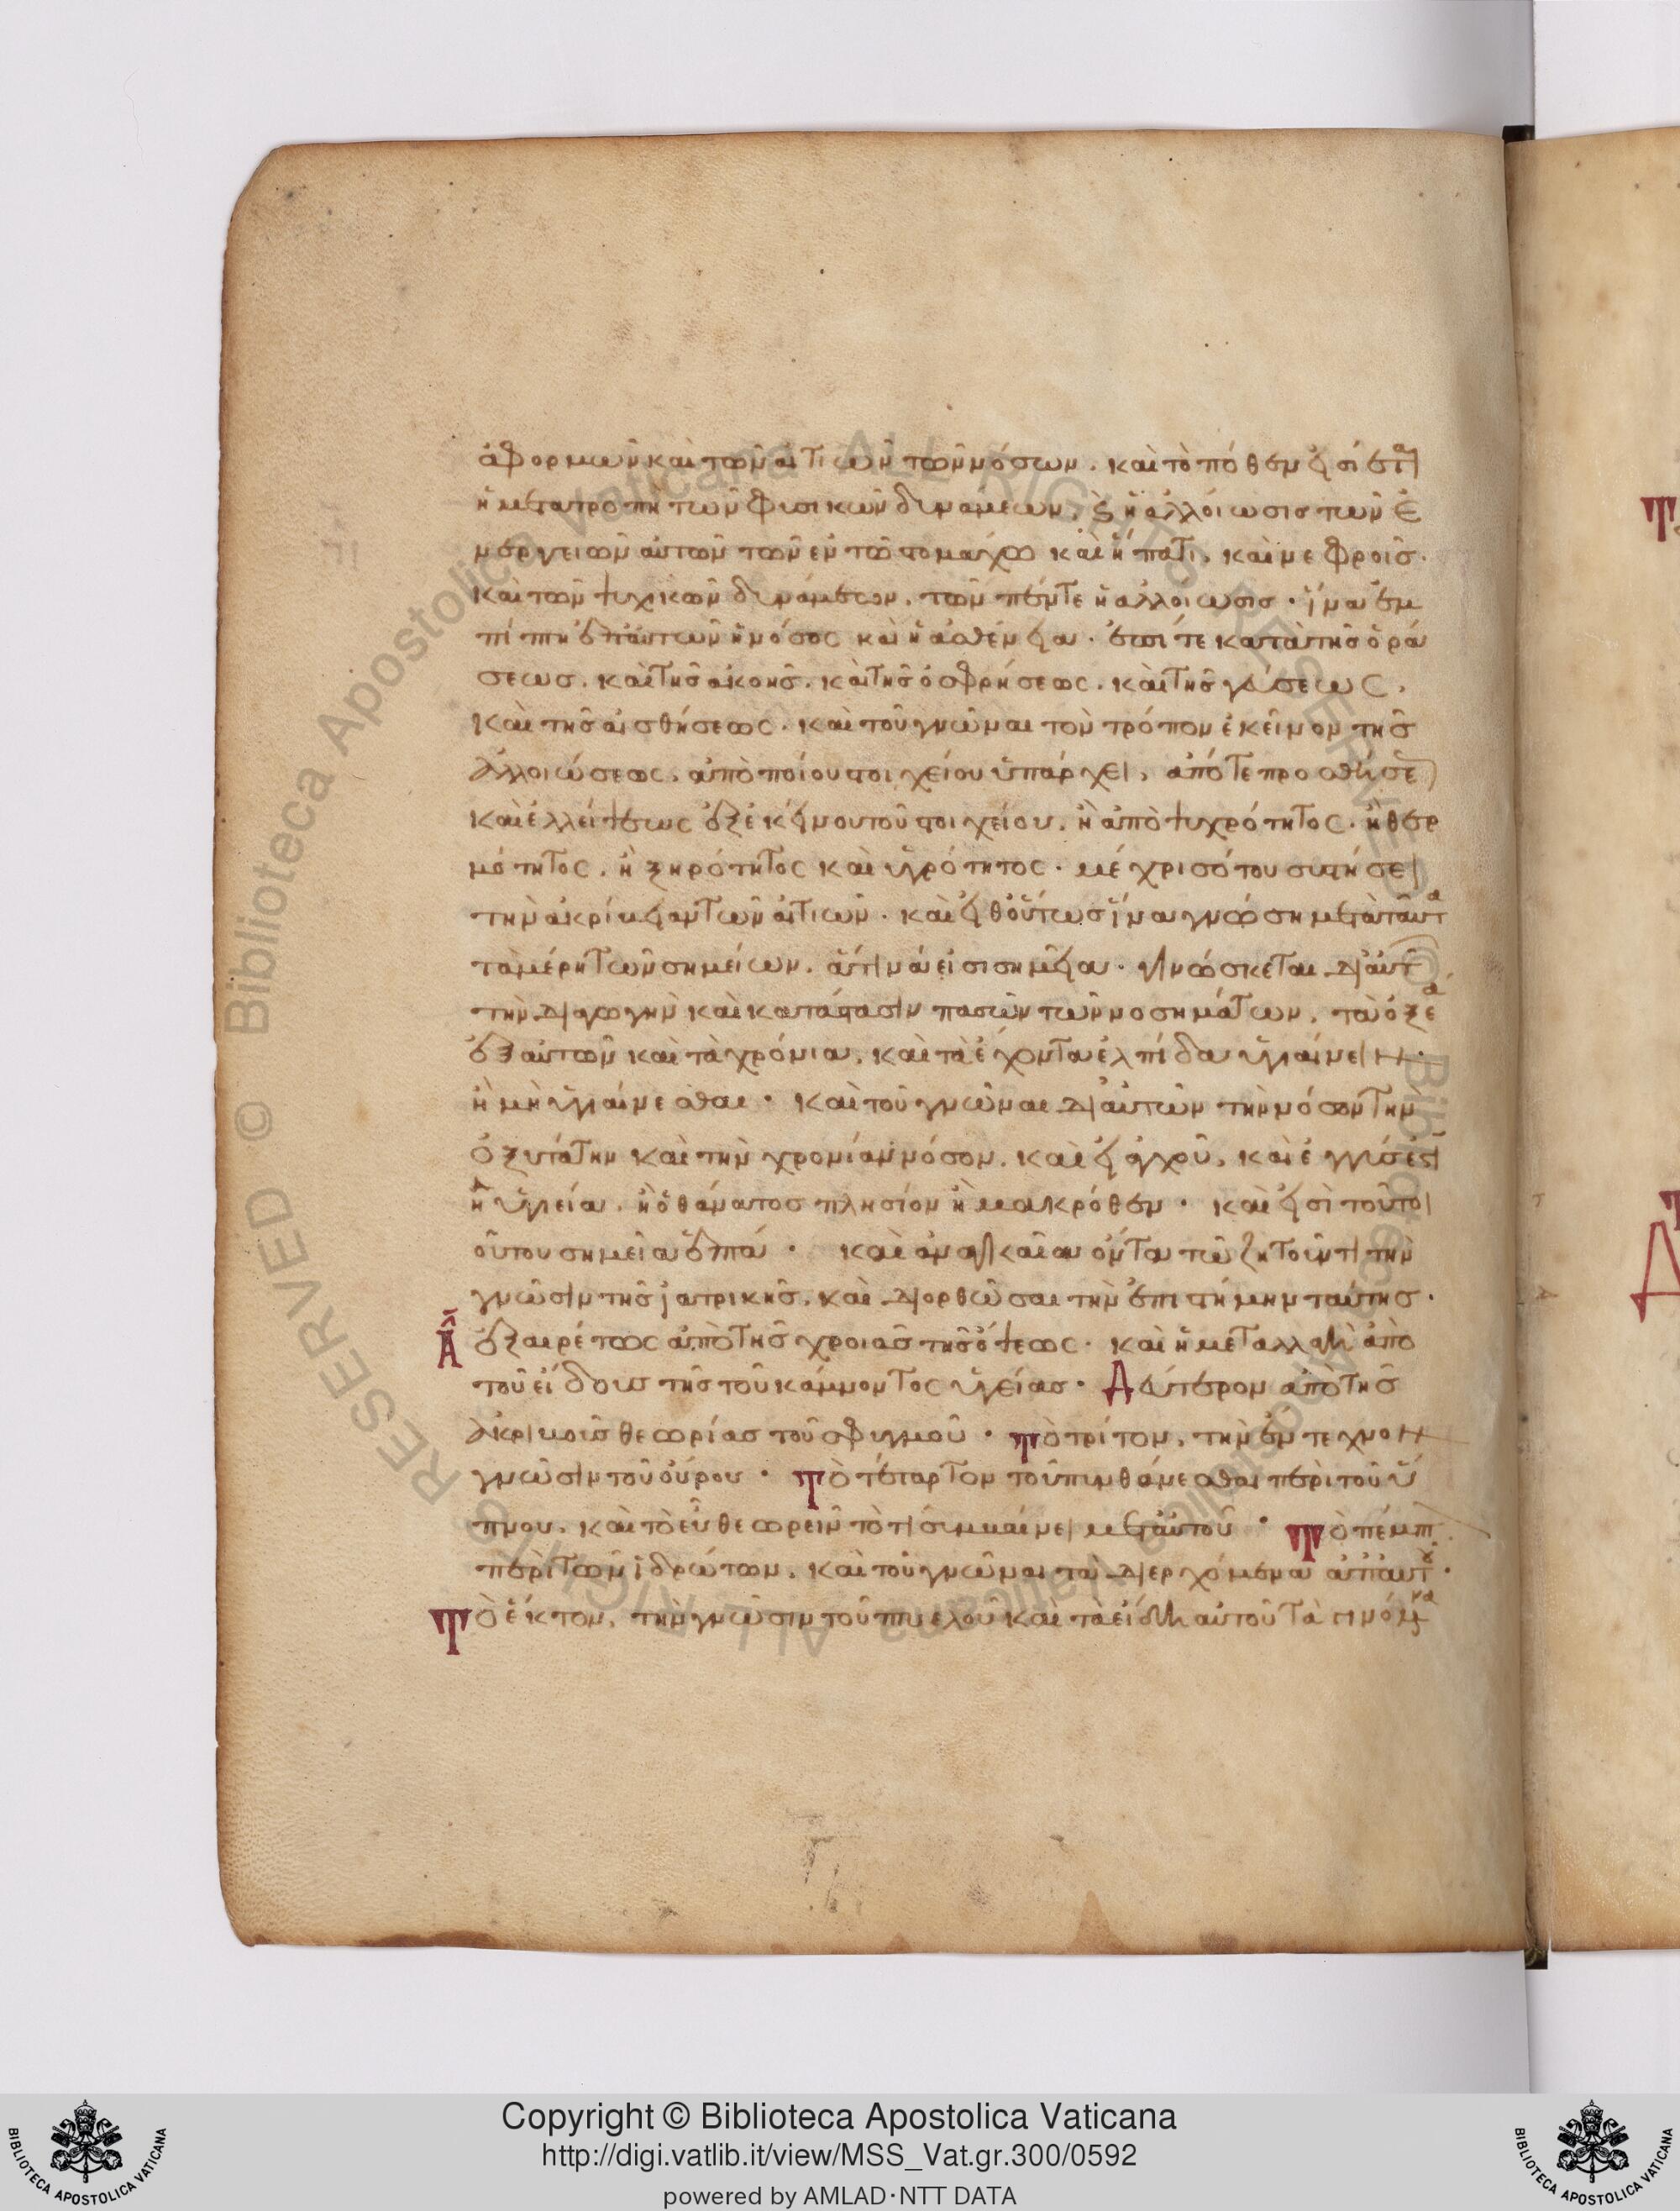 ἀφορμῶν καὶ τῶν αἰτιῶν τῶν νόσων. καὶ τὸ πόθεν εἰσὶ
ἡ μετατροπὴ τῶν φυσικῶν δυνάμεων. ἢ ἡ ἀλλοίωσις τῶν ἐ
νεργειῶν αὐτῶν τῶν ἐν τῶ στομάχω καὶ ἥπατι. καὶ νεφροῖς.
καὶ τῶν ψυχικῶν δυνάμεων. τῶν πέντε ἡ ἀλλοίωσις. ἵνα ἐμ
πίπτη αὐτῶν ἡ νόσος καὶ ἡ ἀσθένεια. ἐπί τε κατὰ τῆς ὁρά
σεως. καὶ τῆς ἀκοῆς. καὶ τῆς ὀσφρήσεως. καὶ τῆς γεύσεως.
καὶ τῆς αἰσθήσεως. καὶ τοῦ γνῶναι τὸν τρόπον ἐκεῖνον τῆς
ἀλλοιώσεως. ἀπὸ ποίου στοιχείου ὑπάρχει. ἀπό τε προσθήσε
καὶ ἐλλείψεως ἐξ ἐκείνου τοῦ στοιχείου. ἢ ἀπὸ ψυχρότητος. ἢ θερ
μότητος. ἢ ξηρότητος καὶ ὑγρότητος. μέχρις ὅτου συστήσει
τὴν ἀκρίβειαν τῶν αἰτιῶν. καὶ εἶθ οὕτως ἵνα γνώση μετὰ ταῦτα
τὰ μέρη τῶν σημείων. ἅτινά εἰσι σημεῖα. γινώσκεται δι αὐτ
τὴν διαγωγὴν καὶ κατάστασιν πασῶν τῶν νοσημάτων. τὰ ὀξέα
ἐξ αὐτῶν καὶ τὰ χρόνια. καὶ τὰ ἔχοντα ἐλπίδα ὑγιαίνειν.
ἢ μὴ ὑγιαίνεσθαι. καὶ τοῦ γνῶναι δι αὐτῶν τὴν νόσον τὴν
ὀξυτάτην καὶ τὴν χρονίαν νόσον. καὶ εἰ ἀχροῦ. καὶ ἐγγίσει
ἡ ὑγιεία. ἢ ὁ θάνατος πλησίον ἢ μακρόθεν. καὶ εἰσὶ τοῦτοι
οὗτου σημεῖα ἑπτά. καὶ ἀναγκαῖα ὄντα τῶ ζητοῦντι τὴν
γνῶσιν τῆς ἰατρικῆς. καὶ διορθῶσαι τὴν ἐπιστήμην ταύτης.
Α ἐξαιρέτως ἀπὸ τῆς χροιᾶς τῆς ὄψεως. καὶ ἡ μεταλλαγὴ ἀπὸ
τοῦ εἴδους τῆς τοῦ κάμνοντος ὑγείας. Δεύτερον ἀπὸ τῆς
ἀκριβοῦς θεωρίας τοῦ σφυγμοῦ. Τὸ τρίτον. τὴν ἔντεχνον
γνῶσιν τοῦ οὔρου. Τὸ τέταρτον τοῦ πυνθάνεσθαι περὶ τοῦ ὕ
πνου. καὶ τὸ εὖ θεωρεῖν τὸ τί συμβαίνει μετ αὐτοῦ. Τὸ πέμπ
περὶ τῶν ἱδρώτων. καὶ τοῦ γνῶναι τὰ διερχόμενα ἀπ αὐτ.
Τὸ ἕκτον. τὴν γνῶσιν τοῦ πτυέλου καὶ τὰ εἴδη αὐτοῦ τὰ γινόμενα
Copyright © Biblioteca Apostolica Vaticana
http://digi.vatlib.it/view/MSS_Vat.gr.300/0592
powered by AMLAD·NTT DATA
BIBLIOTECA APOSTOLICA VATICANA
BIBLIOTECA APOSTOLICA VATICANA